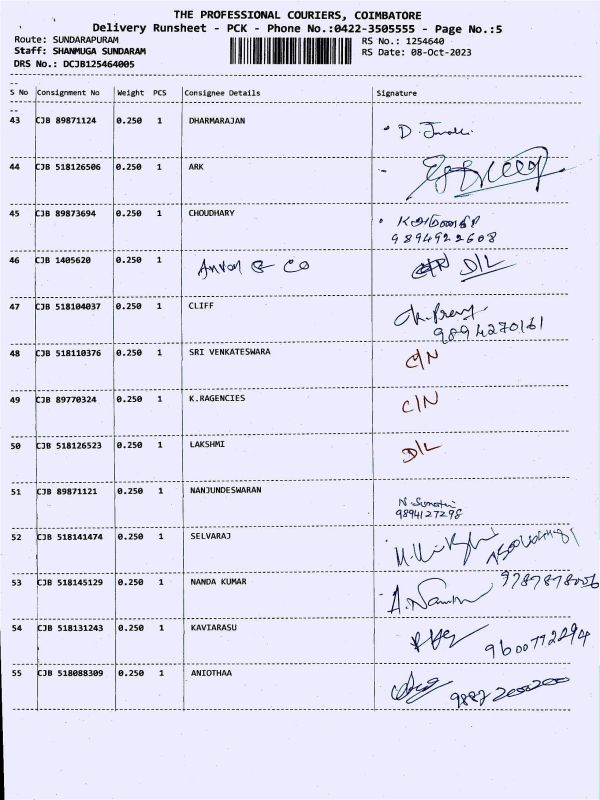 THE PROFESSIONAL COURIERS, COIMBATORE
Delivery Runsheet - PCK - Phone No.:0422-3505555 - Page No.:5
Route: SUNDARAPURAM RS No.: 1254640
Staff: SHANMUGA SUNDARAM RS Date: 08-Oct-2023
DRS No.: DCJB125464005
S No Consignment No Weight PCS Consignee Details Signature
43 CJB 89871124 0.250 1 DHARMARAJAN D.
44 CJB 518126506 0.250 1 ARK
45 CJB 89873694 0.250 1 CHOUDHARY
9894922608
46 CJB 1405620 0.250 1 & Co D/L
47 CJB 518104037 0.250 1 CLIFF
9894270161
48 CJB 518110376 0.250 1 SRI VENKATESWARA C/N
49 CJB 89770324 0.250 1 K.RAGENCIES C/N
50 CJB 518126523 0.250 1 LAKSHMI D/L
51 CJB 89871121 0.250 1 NANJUNDESWARAN N.
9894127298
52 CJB 518141474 0.250 1 SELVARAJ
53 CJB 518145129 0.250 1 NANDA KUMAR A.
54 CJB 518131243 0.250 1 KAVIARASU 9600772294
55 CJB 518088309 0.250 1 ANIOTHAA